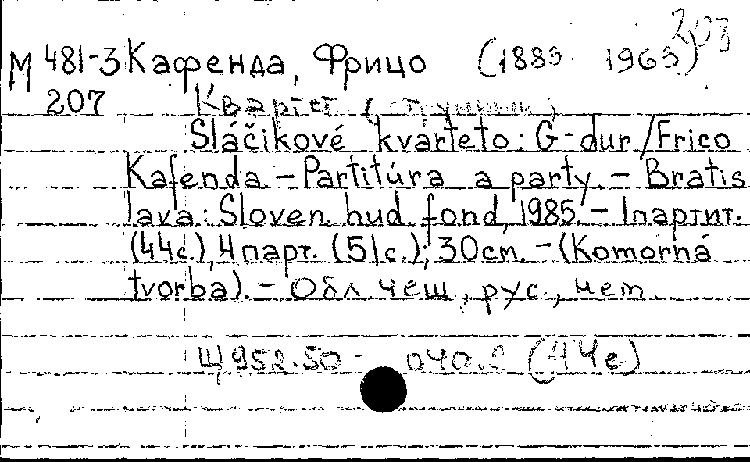 203
М 481-3 Кафенда, Фрицо (1883 1963)
207 Квартет (
Sláčikové kvarteto: G-dur/Frico
Kafenda. - Partitúra a party. - Bratis
lava: Sloven. hud. fond, 1985. - 1 партит.
(44с.), 4 парт. (51с.); 30 см. - (Komorná
tvorba). - Обл. чеш., рус., нем.
Щ952.50 - 040.2 (4Че)